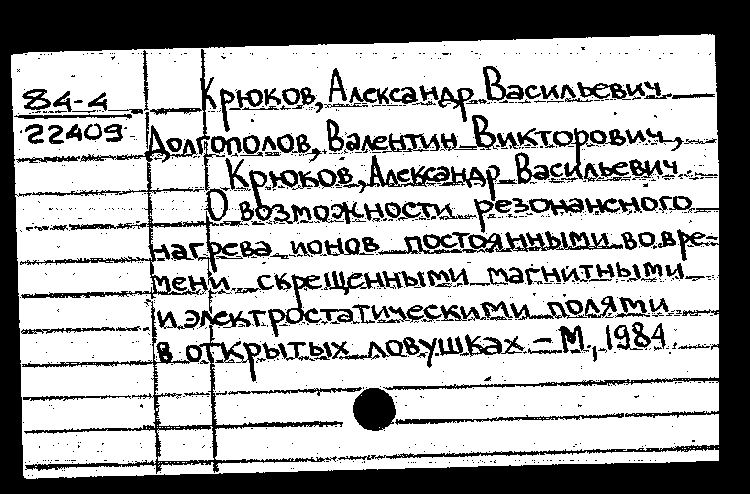 84-4
22409
Крюков, Александр Васильевич
Долгополов, Валентин Викторович,
Крюков, Александр Васильевич
О возможности резонансного
нагрева ионов постоянными во вре-
мени скрещенными магнитными
и электростатическими полями
в открытых ловушках – М, 1984.